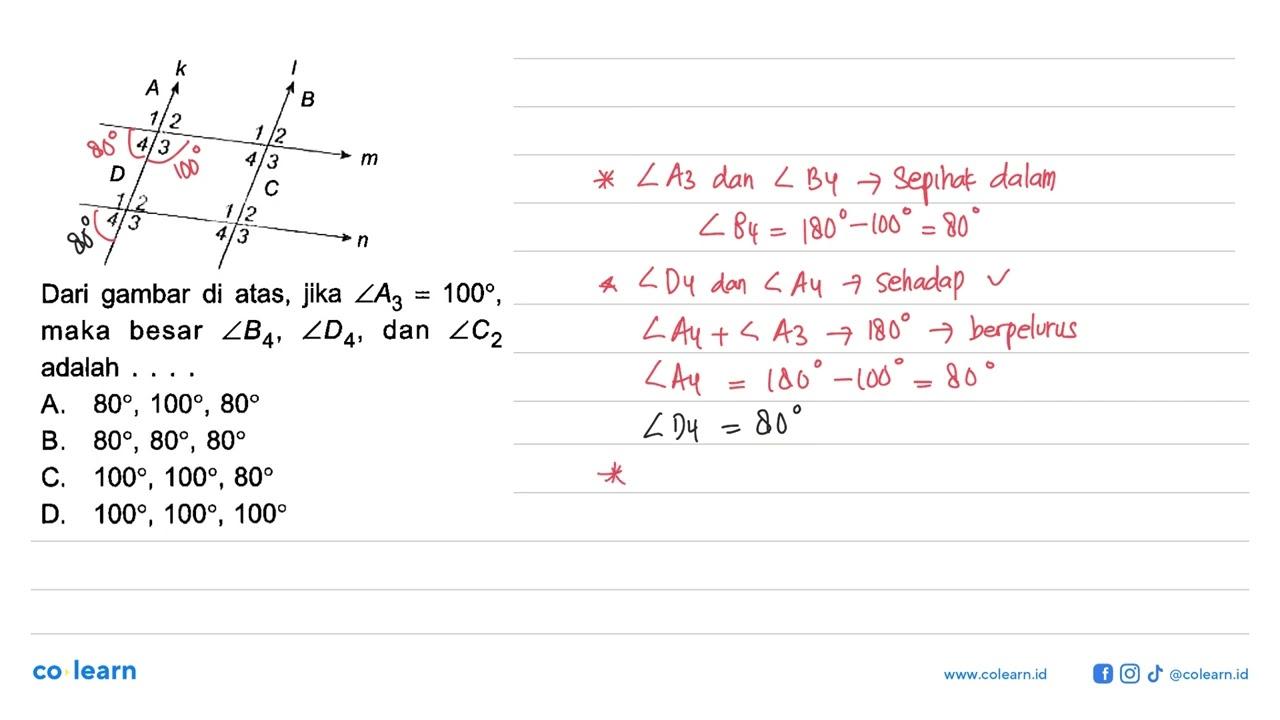 k
l
A
B
1 2
1 2
80°
4 3
100°
4 3
m
D
C
1 2
1 2
80°
4 3
4 3
n
Dari gambar di atas, jika ∠A₃ = 100°,
maka besar ∠B₄, ∠D₄, dan ∠C₂
adalah . . . .
A. 80°, 100°, 80°
B. 80°, 80°, 80°
C. 100°, 100°, 80°
D. 100°, 100°, 100°
* ∠A3 dan ∠B4 → Sepihak dalam
∠B4 = 180° - 100° = 80°
* ∠D4 dan ∠A4 → Sehadap ✓
∠A4 + ∠A3 → 180° → berpelurus
∠A4 = 180° - 100° = 80°
∠D4 = 80°
*
co learn
www.colearn.id
@colearn.id